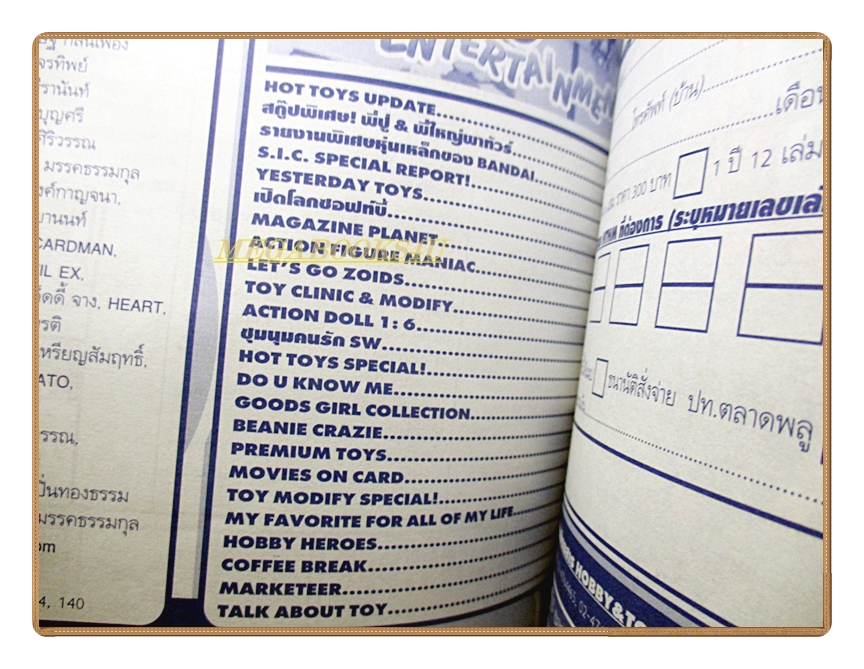 จรทิพย์
รานันท์
บุญศรี
ศิริวรรณ
มรรคธรรมกุล
งค์กาญจนา,
านนท์
CARDMAN,
IL EX,
จาง, HEART,
รติ
เหรียญสัมฤทธิ์,
ATO,
รรณ,
ปิ่นทองธรรม
มรรคธรรมกุล
om
4, 140
ENTERTAINMENT
HOT TOYS UPDATE
สกู๊ปพิเศษ! พี่ปู & พี่ใหญ่พาทัวร์
รายงานพิเศษหุ่นเหล็กของ BANDAI
S.I.C. SPECIAL REPORT!
YESTERDAY TOYS
เปิดโลกซอฟท์บี้
MAGAZINE PLANET
ACTION FIGURE MANIAC
LET'S GO ZOIDS
TOY CLINIC & MODIFY
ACTION DOLL 1 : 6
ชุมนุมคนรัก SW
HOT TOYS SPECIAL!
DO U KNOW ME
GOODS GIRL COLLECTION
BEANIE CRAZIE
PREMIUM TOYS
MOVIES ON CARD
TOY MODIFY SPECIAL!
MY FAVORITE FOR ALL OF MY LIFE
HOBBY HEROES
COFFEE BREAK
MARKETEER
TALK ABOUT TOY
MEGABOOKS4U
โทรศัพท์ (บ้าน)
เดือน
ราคา 300 บาท
1 ปี 12 เล่ม
ที่ต้องการ (ระบุหมายเลขเล่
ธนาณัติสั่งจ่าย ปท.ตลาดพลู
HOBBY & TO